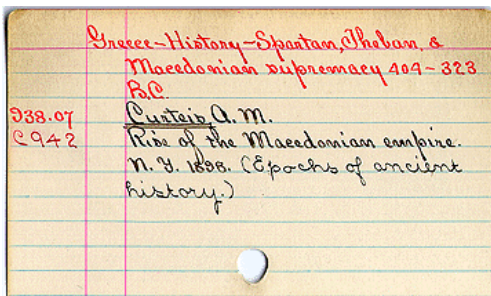 Greece-History-Spartan, Theban, &
Macedonian supremacy 404-323
B.C.
938.07 Curteis, A. M.
C942 Rise of the Macedonian empire.
N. Y. 1898. (Epochs of ancient
history.)